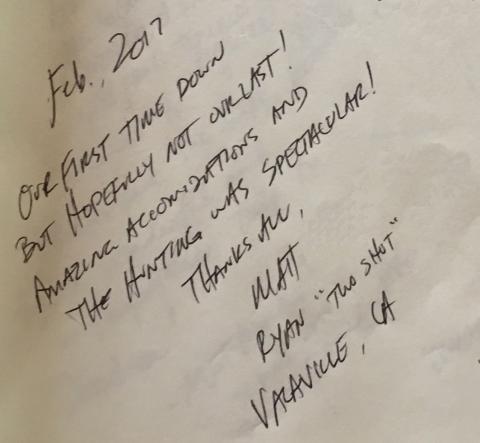 Feb., 2017
OUR FIRST TIME DOWN
BUT HOPEFULLY NOT OUR LAST!
AMAZING ACCOMIDATIONS AND
THE HUNTING WAS SPECTACULAR!
THANKS ALL,
MATT
RYAN "TWO SHOT"
VACAVILLE, CA